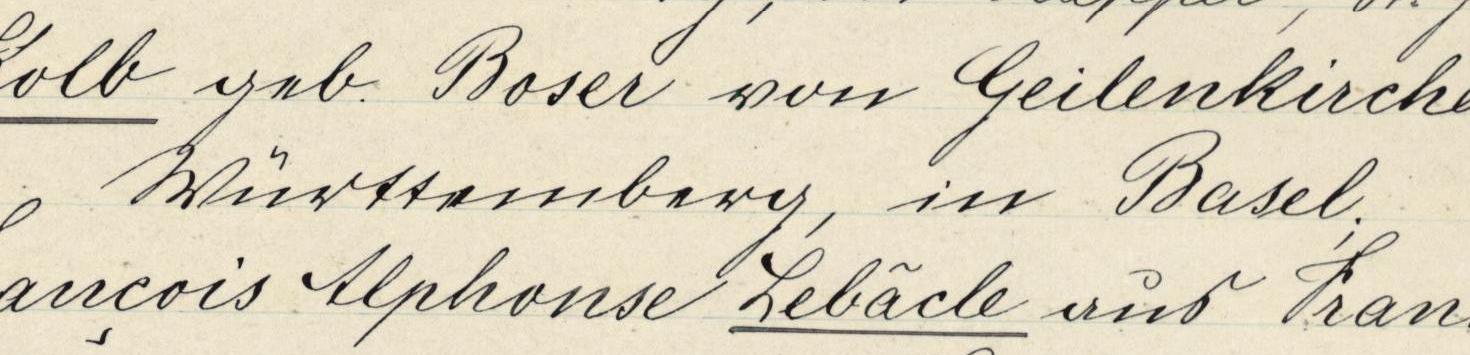 Kolb geb. Boser von Geilenkirche
Württemberg, in Basel;
ançois Alphonse Lebâcle aus Fran